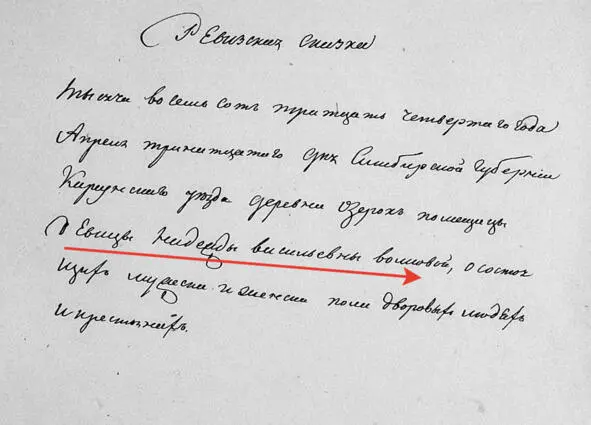 Ревизская сказка
тысяча восемь сотъ тритцать четвертаго года
Апреля тринатцатого дня Симбирской Губернии
Карсунского уезда деревни Озерокъ помещицы
Девицы Надежды васильевны волковой, о состоя
щихъ мужеска и женска пола дворовыхъ людехъ
и крестьянехъ.